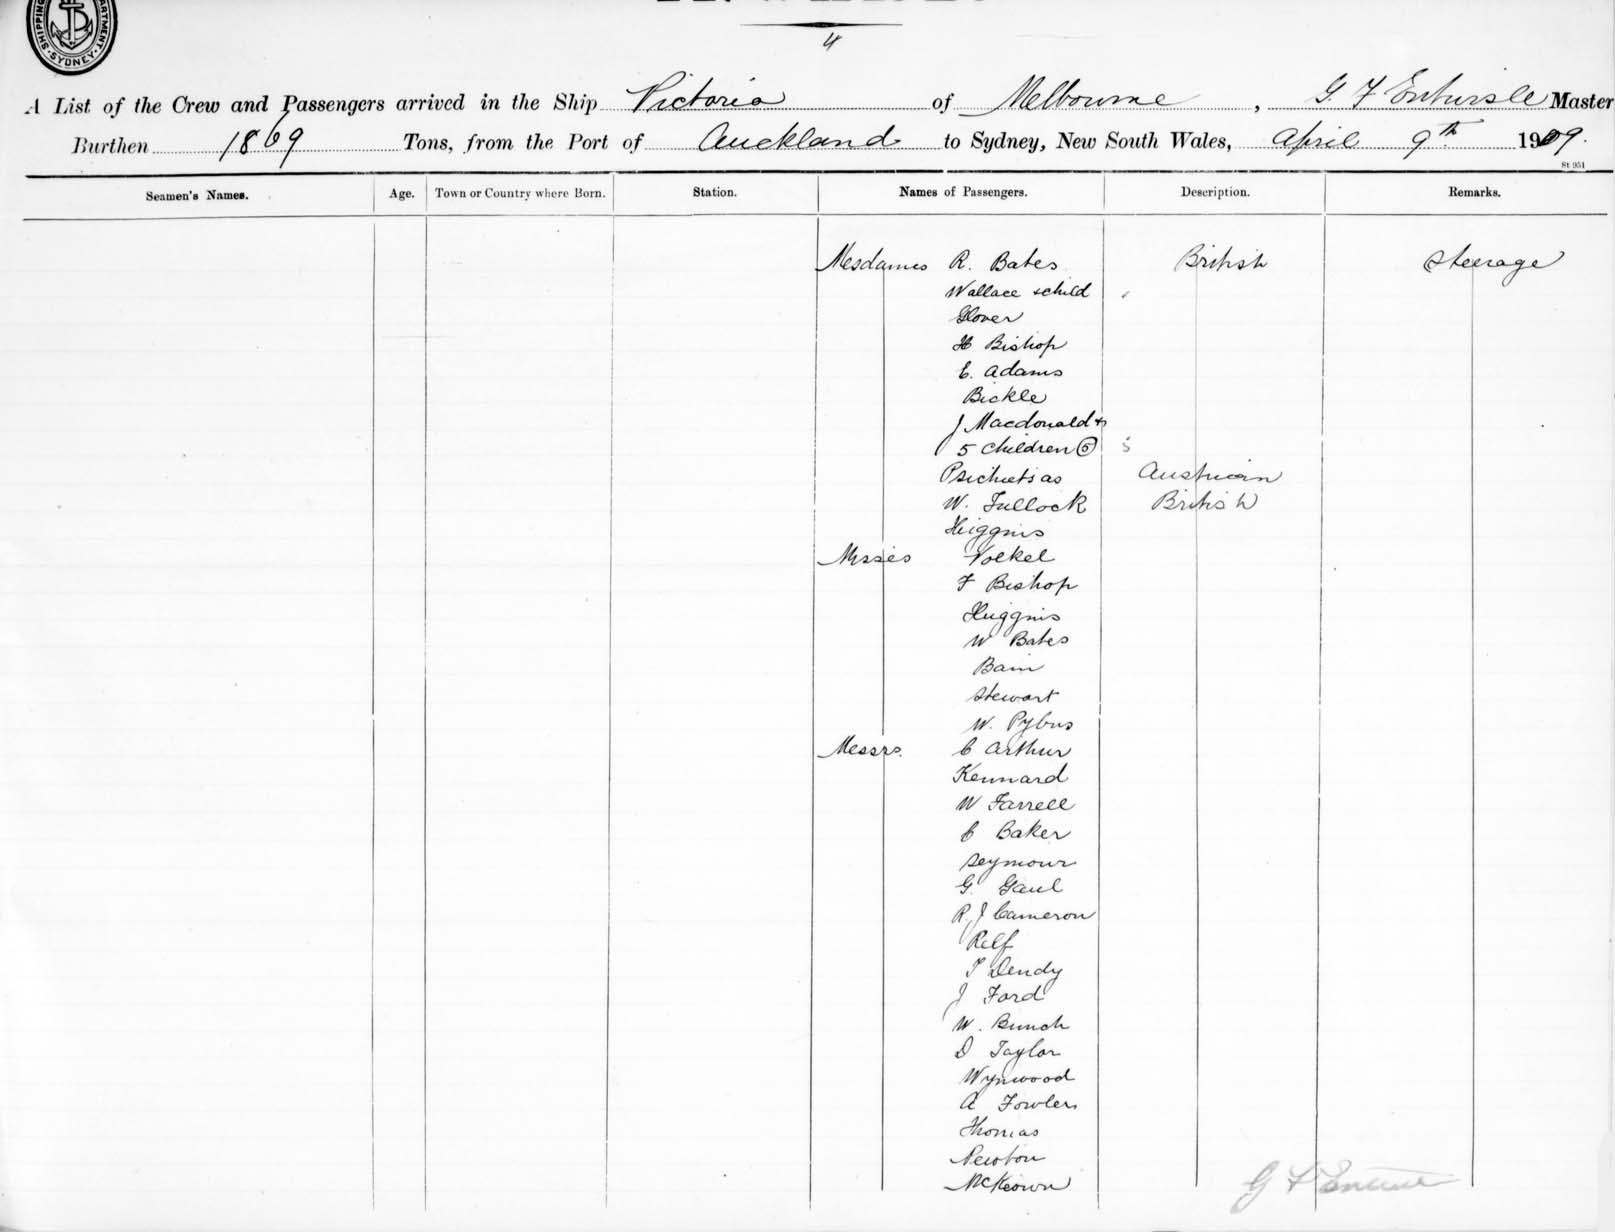 SHIPPING DEPARTMENT SYDNEY
4
A List of the Crew and Passengers arrived in the Ship Victoria of Melbourne, G. F Entwisle Master
Burthen 1869 Tons, from the Port of Auckland to Sydney, New South Wales, April 9th 1909.
St 951
Seamen's Names. Age. Town or Country where Born. Station. Names of Passengers. Description. Remarks.
Mesdames R. Bates British Steerage
Wallace & child
Glover
H Bishop
E. Adams
Bickle
J Macdonald &
5 children 5 5
Austrian
W. Tullock British
Higgins
Misses Volkel
F Bishop
Higgins
W Bates
Bain
Stewart
W. Pybus
Messrs. C Arthur
Kennard
W Farrell
C Baker
Seymour
G. Gaul
R. J Cameron
Relf
T Dendy
J Ford
W. Bunch
D Taylor
Wynwood
A Fowler
Thomas
Newton
McKeown